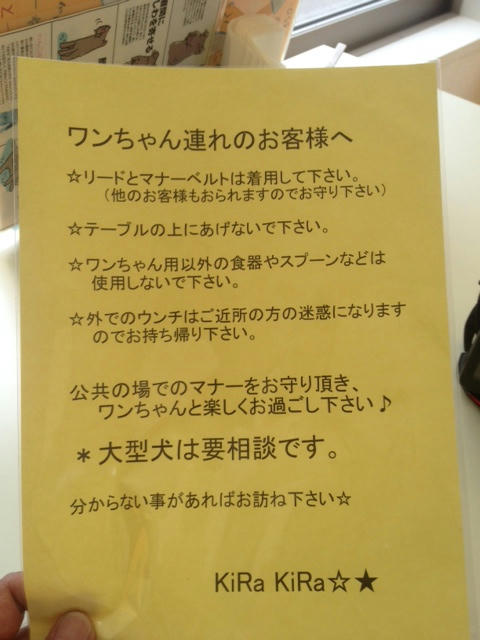 ワンちゃん連れのお客様へ
☆リードとマナーベルトは着用して下さい。
(他のお客様もおられますのでお守り下さい)
☆テーブルの上にあげないで下さい。
☆ワンちゃん用以外の食器やスプーンなどは
使用しないで下さい。
☆外でのウンチはご近所の方の迷惑になります
のでお持ち帰り下さい。
公共の場でのマナーをお守り頂き、
ワンちゃんと楽しくお過ごし下さい♪
＊大型犬は要相談です。
分からない事があればお訪ね下さい☆
KiRa KiRa☆★